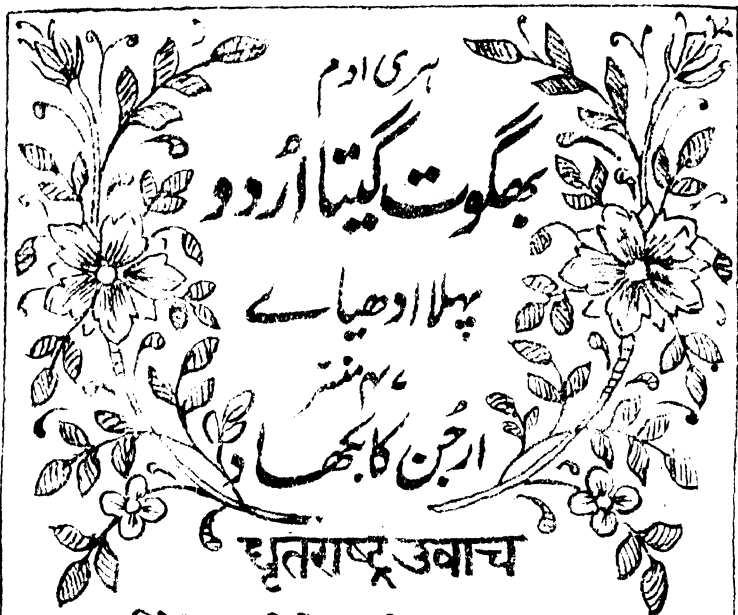 ہری اوم
بھگوت گیتا اُردو
پہلا ادھیائے
۴۷ منتر
ارجُن کا بکھاد
धृतराष्ट्र उवाच